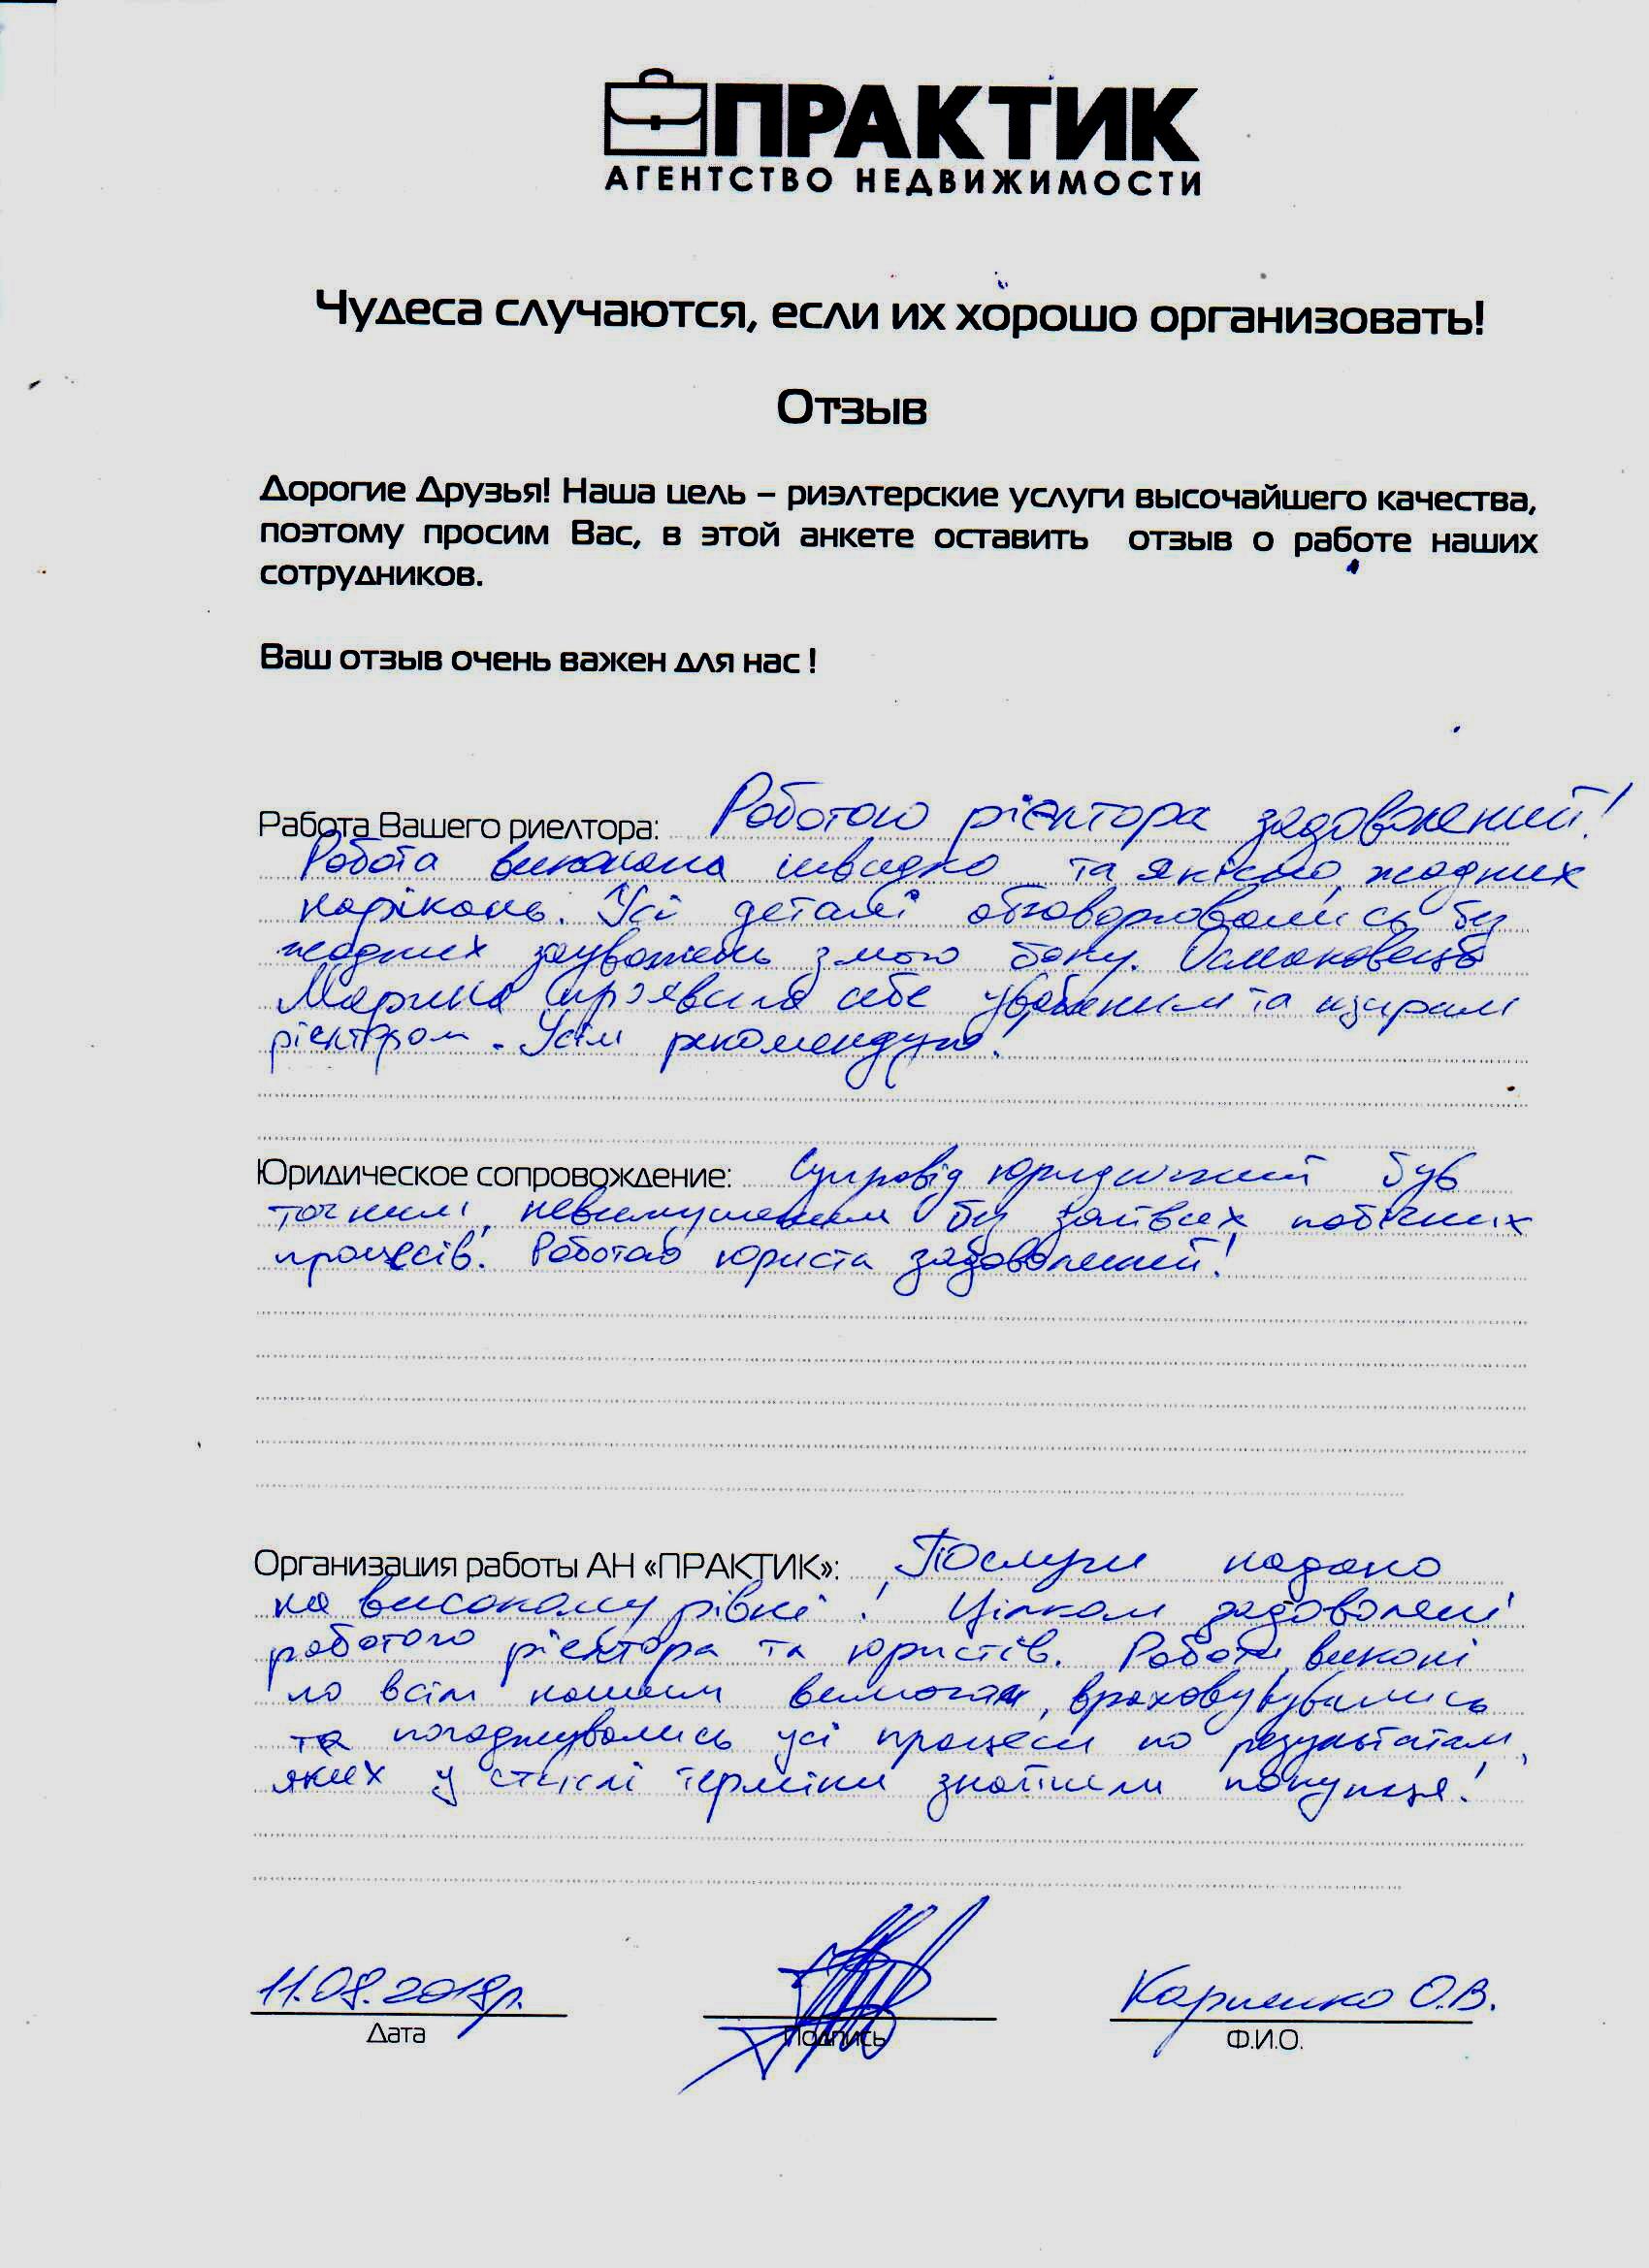 ПРАКТИК
АГЕНТСТВО НЕДВИЖИМОСТИ
Чудеса случаются, если их хорошо организовать!
Отзыв
Дорогие Друзья! Наша цель – риэлтерские услуги высочайшего качества,
поэтому просим Вас, в этой анкете оставить отзыв о работе наших
сотрудников.
Ваш отзыв очень важен для нас !
Работа Вашего риелтора: Роботою рієлтора задоволений!
Робота виконана швидко та якісно, жодних
нарікань. Усі деталі обговорювались без
жодних зауважень з мого боку.
Марина проявила себе уважним та щирим
рієлтором. Усім рекомендую!
Юридическое сопровождение: Супровід юридичний був
точним, невимушеним без зайвих побічних
процесів. Роботою юриста задоволений!
Организация работы АН «ПРАКТИК»: Послуги надано
на високому рівні! Цілком задоволені
роботою рієлтора та юристів. Робота
по всім нашим вимогам,
та погоджувались усі процеси по результатам,
яких у стислі терміни знайшли покупця!
11.08.2018р.
Дата
Подпись
О.В.
Ф.И.О.